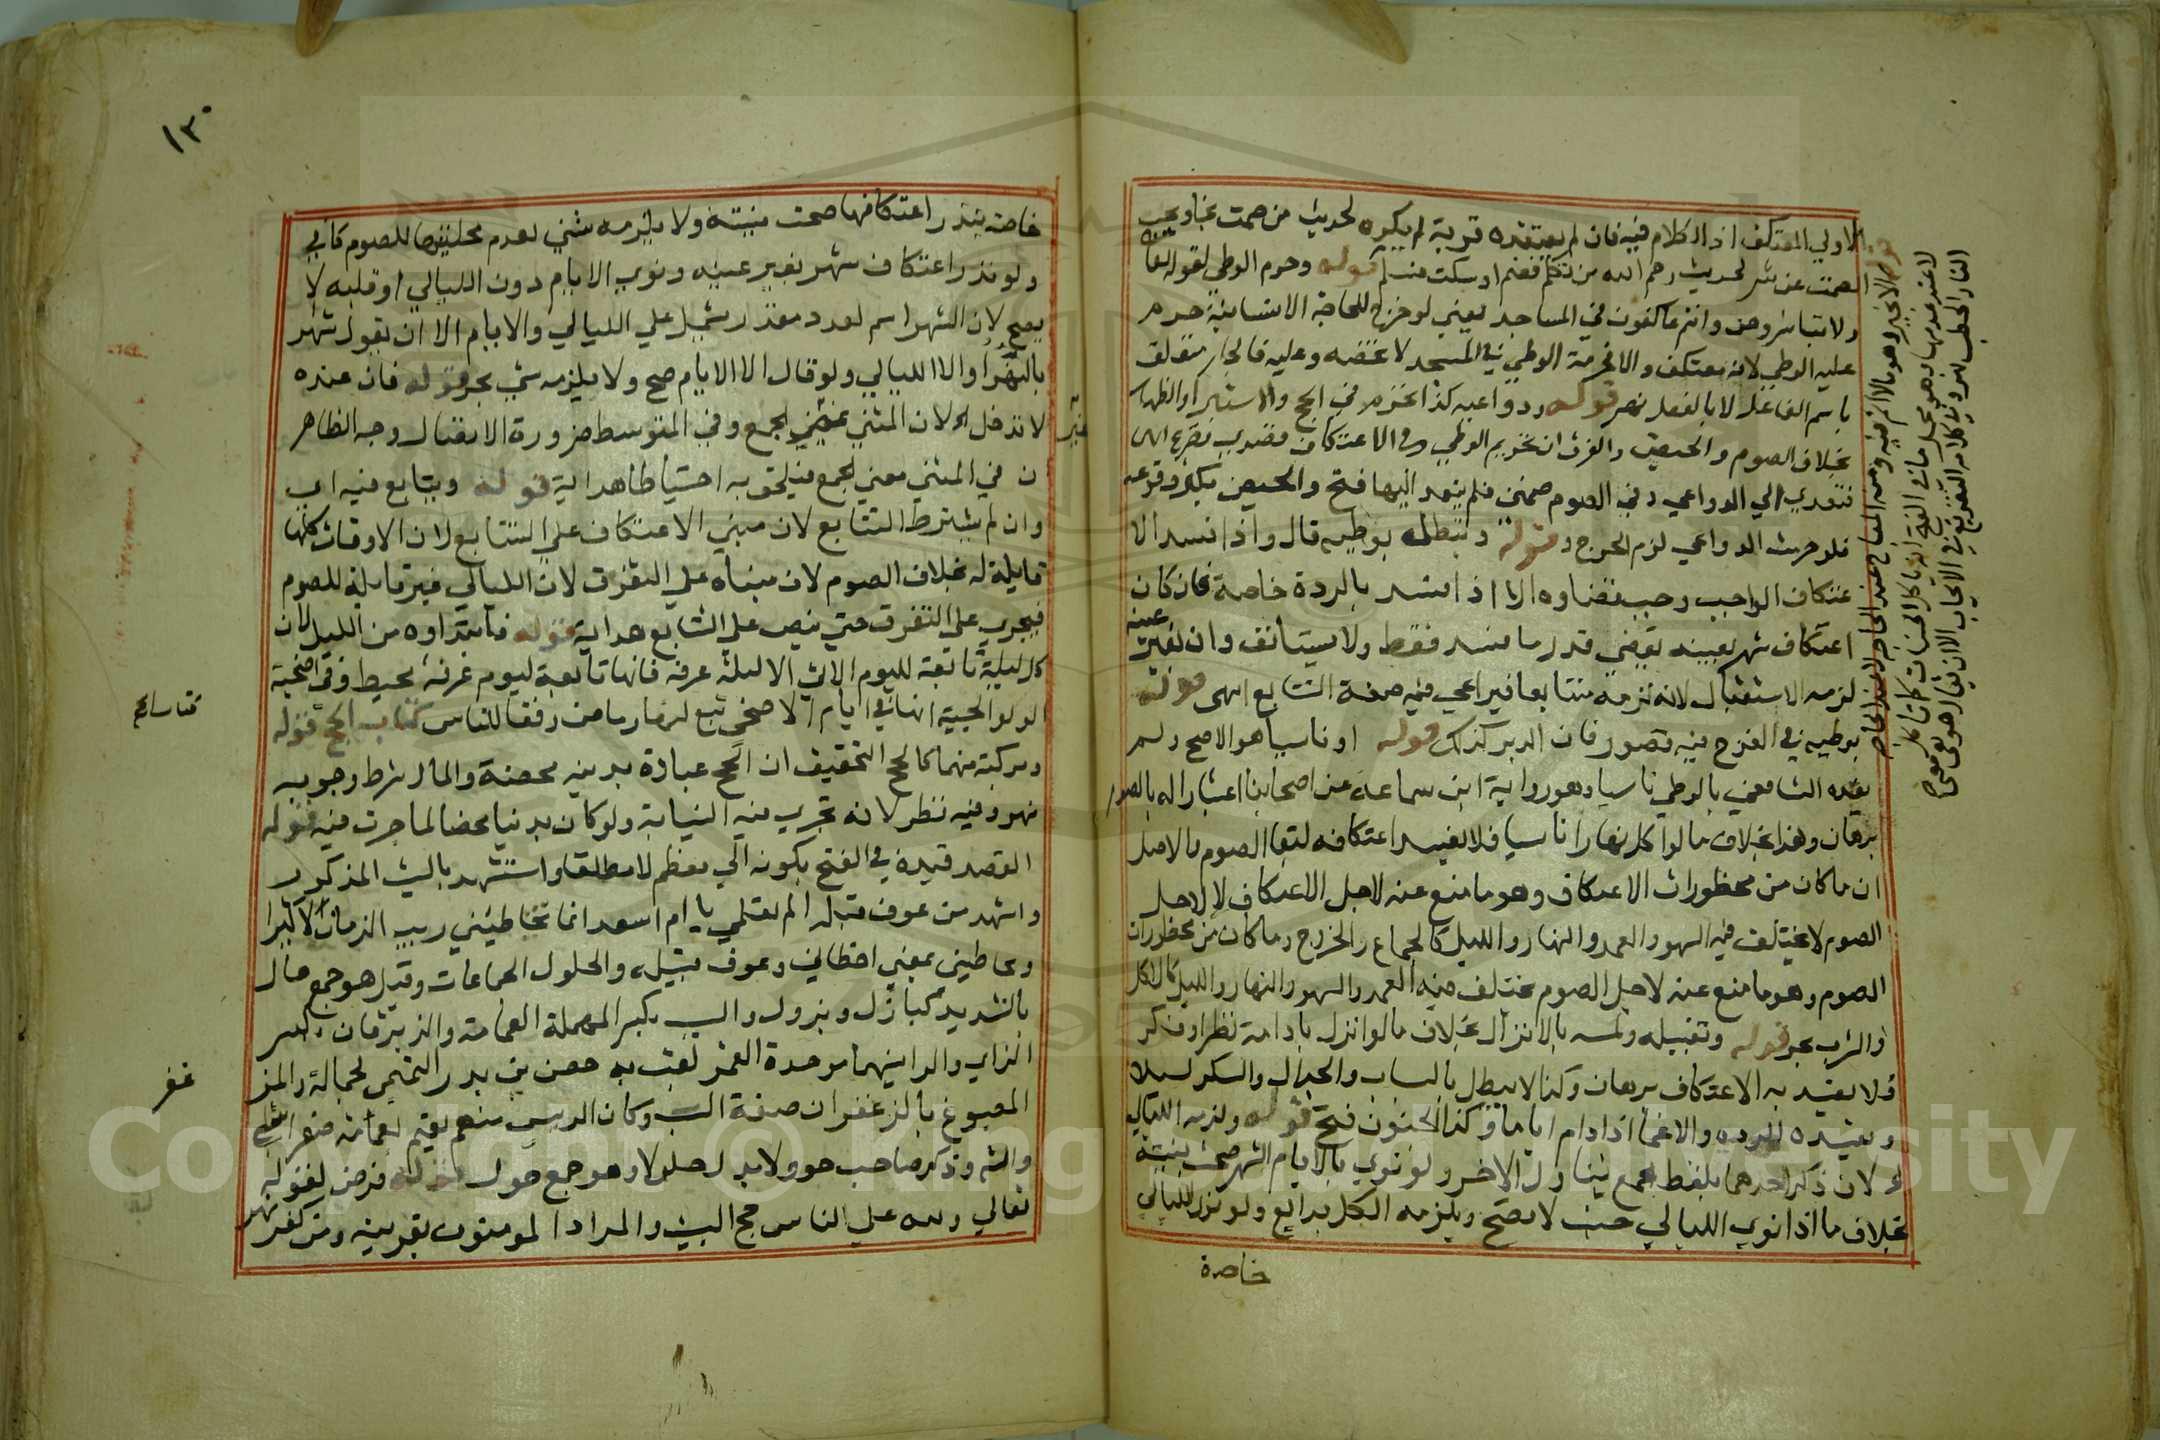 الاولي المعتكف اذ الكلام فيه فان لم يعتقده قربة لم يكره لحديث من صمت نجا ويجب
الصمت عن شر لحديث رحم الله من تكلم فغنم او سكت فسلم قوله وحرم الوطي لقوله تعا
ولا تباشروهن وانتم عاكفون في المساجد يعني لو خرج للحاجة الانسانية حرم
عليه الوطي لانه معتكف والا فحرمة الوطي في المسجد لا تخصه وعليه فالجار متعلق
باسم الفاعل لا بالفعل نهر قوله ودواعيه كذا تحرم في الحج والاستبرا والظهار
بخلاف الصوم والحيض والفرق ان تحريم الوطي في الاعتكاف قصدي
فتعدي الي الدواعي وفي الصوم ضمني فلم يتعد اليها فتح والحيض يكثر وقوعه
فلو حرمت الدواعي لزم الحرج قوله وتبطل بوطيه قال واذا فسد الا
عتكاف الواجب وجب قضاوه الا اذا فسد بالردة خاصة فان كان
اعتكاف شهر بعينه يقضي قدر ما فسد فقط ولا يستانف وان بغير عينه
لزمه الاستقبال لانه لزمه متتابعا فيراعي فيه صفة التتابع انتهى قوله
بوطيه في الفرج فيه قصور فان الدبر كذلك قوله او ناسيا هو الاصح ولم
يفسده الشافعي بالوطي ناسيا وهو رواية ابن سماعة عن اصحابنا اعتبارا له بالصوم
برهان وهذا بخلاف ما لو اكل نهارا ناسيا فلا يفسد اعتكافه لبقا الصوم والاصل
ان ما كان من محظورات الاعتكاف وهو ما منع عنه لاجل الاعتكاف لا لاجل
الصوم لا يختلف فيه السهو والعمد والنهار والليل كالجماع والخروج وما كان من محظورات
الصوم وهو ما منع عنه لاجل الصوم يختلف فيه العمد والسهو والنهار والليل كالاكل
والشرب بحر قوله وتقبيله ولمسه بالانزال بخلاف ما لو انزل بادامة نظر او فكر
فلا يفسد به الاعتكاف برهان وكذا لا يبطل بالسباب والجدال والسكر ليلا
ويفسده الردة والاغما اذا دام اياما وكذا الجنون فتح قوله ولزمه الليالي
لان ذكر احدهما بلفظ الجمع يتناول الاخر ولو نوي بالايام الشهر صحت نيته
بخلاف ما اذا نوي الليالي حيث لا يصح ويلزمه الكل بدايع ولو نذر الليالي
خاصة
خاصة بنذر اعتكافها صحت نيته ولا يلزمه شي لعدم محليتها للصوم كافي
ولو نذر اعتكاف شهر بغير عينه ونوي الايام دون الليالي او قلبه لا
يصح لان الشهر اسم لعدد مقدر يشمل علي الليالي والايام الا ان يقول شهر
بالنهر او الا الليالي ولو قال الا الايام صح ولا يلزمه شي بحر قوله فان عنده
لا تدخل لان المثني غير الجمع وفي المتوسط ضرورة الاتصال وجه الظاهر
ن في المثني معني الجمع فيلحق به احتياطا هداية قوله ويتابع فيه اي
وان لم يشترط التتابع لان مبني الاعتكاف علي التتابع لان الاوقات كلها
قابلة له بخلاف الصوم لان مبناه علي التفرق لان الليالي غير قابلة للصوم
فيجري علي التفرق حتي ينص علي التتابع هداية قوله فابتداوه من الليل لان
كل ليلة تابعة لليوم الاتي الا ليلة عرفة فانها تابعة ليوم عرفة محيط وفي اضحية
الولوالجية انها في ايام الاضحي تبع لنهار ما مضي رفقا للناس كتاب الحج قوله
ومركبة منهما كالحج التحقيق ان الحج عبادة بدنية محضة والمال شرط وجوبه
نهر وفيه نظر لانه تجري فيه النيابة ولو كان بدنيا محضا لما جرت فيه قوله
القصد قيده في الفتح بكونه الي معظم لا مطلقا واستشهد بالبيت المذكور
واشهد من عوف قبله الم تعلمي يا ام اسعد انما تخاطيني ريب الزمان لاكبرا
وتخاطيني بمعني اخطاني وعوف قبيلة والحلول الجماعات وقيل هو جمع حال
بالتشديد كبازل وبزول والسب بكسر المهملة العمامة والزبرقان بكسر
الزاي والرا بينهما موحدة القمر لقب به حصن بن بدر التميمي لجماله والمز
المصبوغ بالزعفران صفة السب وكان الرييس منهم يقيم لعمامته
وذكر صاحب حوولا بدل حلولا وهو جمع حول قوله فرض لقوله
تعالي ولله علي الناس حج البيت والمراد المومنون بقرينة ومن كفر نهر
١٣٠